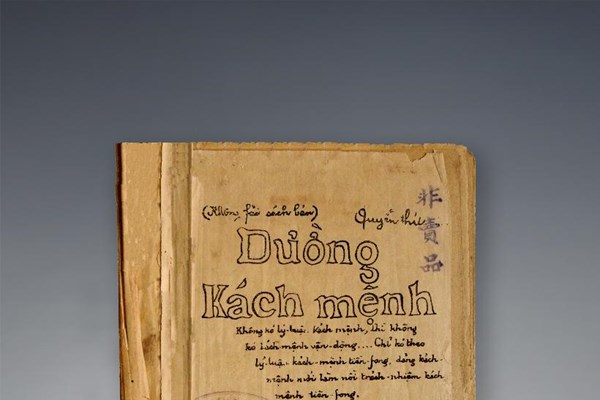 (Không fải sách bán) Quyển thứ
非賣品
Đường
Kách mệnh
Không kó lý-luận kách mệnh, thì không
kó kách mệnh vận-động.... Chỉ kó theo
lý-luận kách-mệnh tiền-fong, đảng kách-
mệnh mới làm nổi trách-nhiệm kách
mệnh tiền-fong.